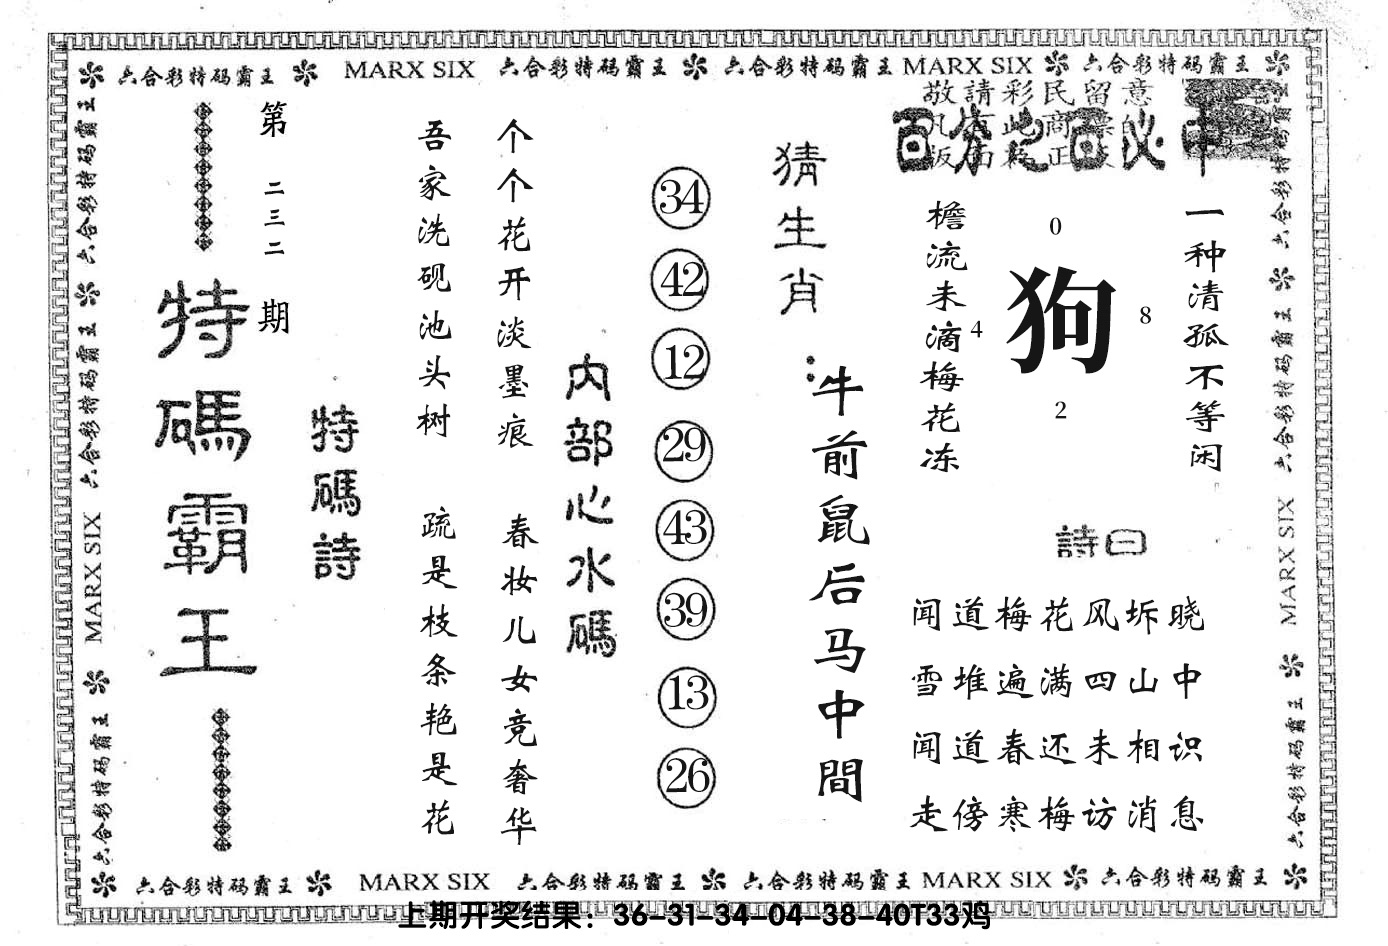 六合彩特码霸王 MARX SIX 六合彩特码霸王 六合彩特码霸王 MARX SIX 六合彩特码霸王
敬請彩民留意
百分之百必中
一种清孤不等闲
檐流未滴梅花冻
0
4
狗
8
2
詩曰
闻道梅花风坼晓
雪堆遍满四山中
闻道春还未相识
走傍寒梅访消息
猜生肖：
牛前鼠后马中間
34
42
12
29
43
39
13
26
内部心水碼
个个花开淡墨痕 春妆儿女竞奢华
吾家洗砚池头树 疏是枝条艳是花
特碼詩
第二三二期
特碼霸王
六合彩特码霸王 六合彩特码霸王 MARX SIX 六合彩特码霸王
六合彩特码霸王 六合彩特码霸王 MARX SIX 六合彩特码霸王
六合彩特码霸王 MARX SIX 六合彩特码霸王 六合彩特码霸王 MARX SIX 六合彩特码霸王
上期开奖结果：36-31-34-04-38-40T33鸡